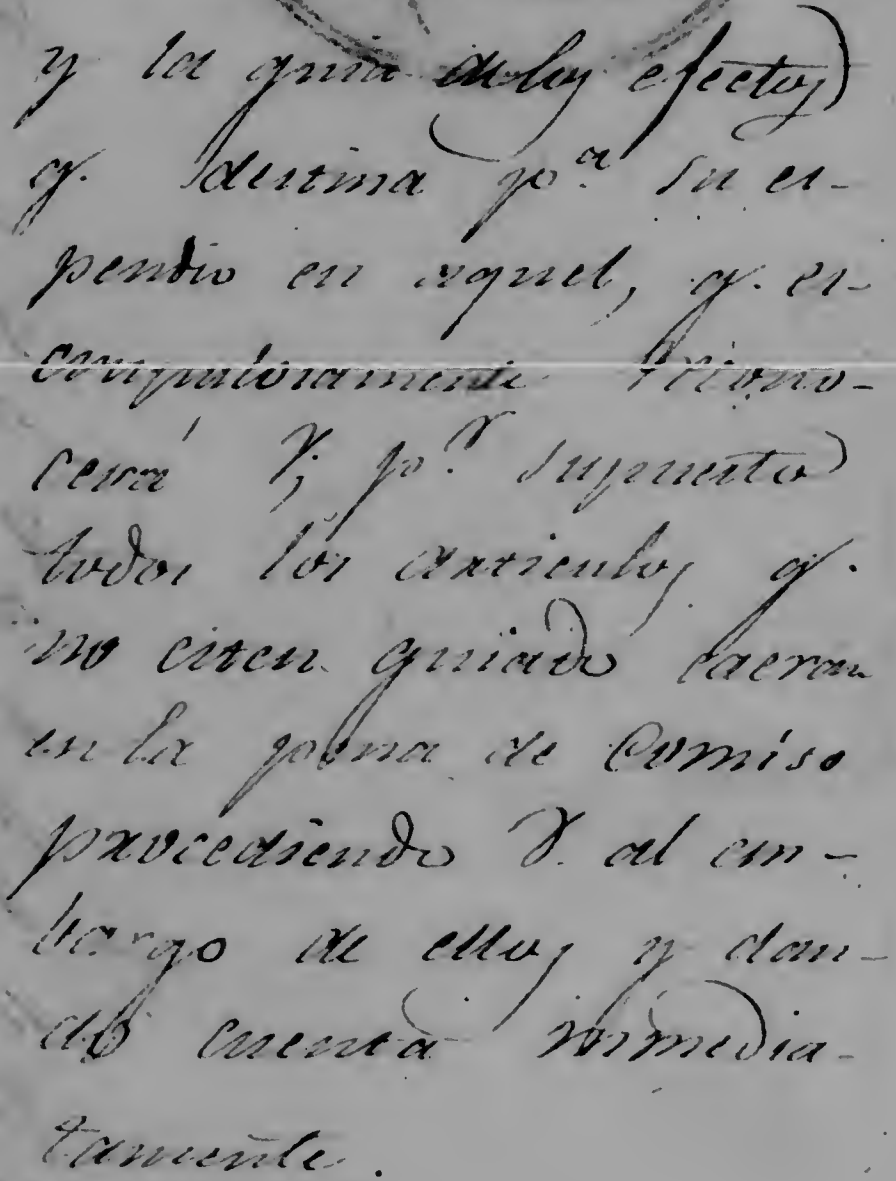 y la guia delos efectos
q. destina pª su es-
pendio en aquel, q. es-
crupulosamente recono-
cerá V; pr supuesto
todos los articulos q.
no esten guiado caeran
en la pena de Comiso
procediendo V. al em-
bargo de ellos y dan-
do cuenta inmedia-
tamente.